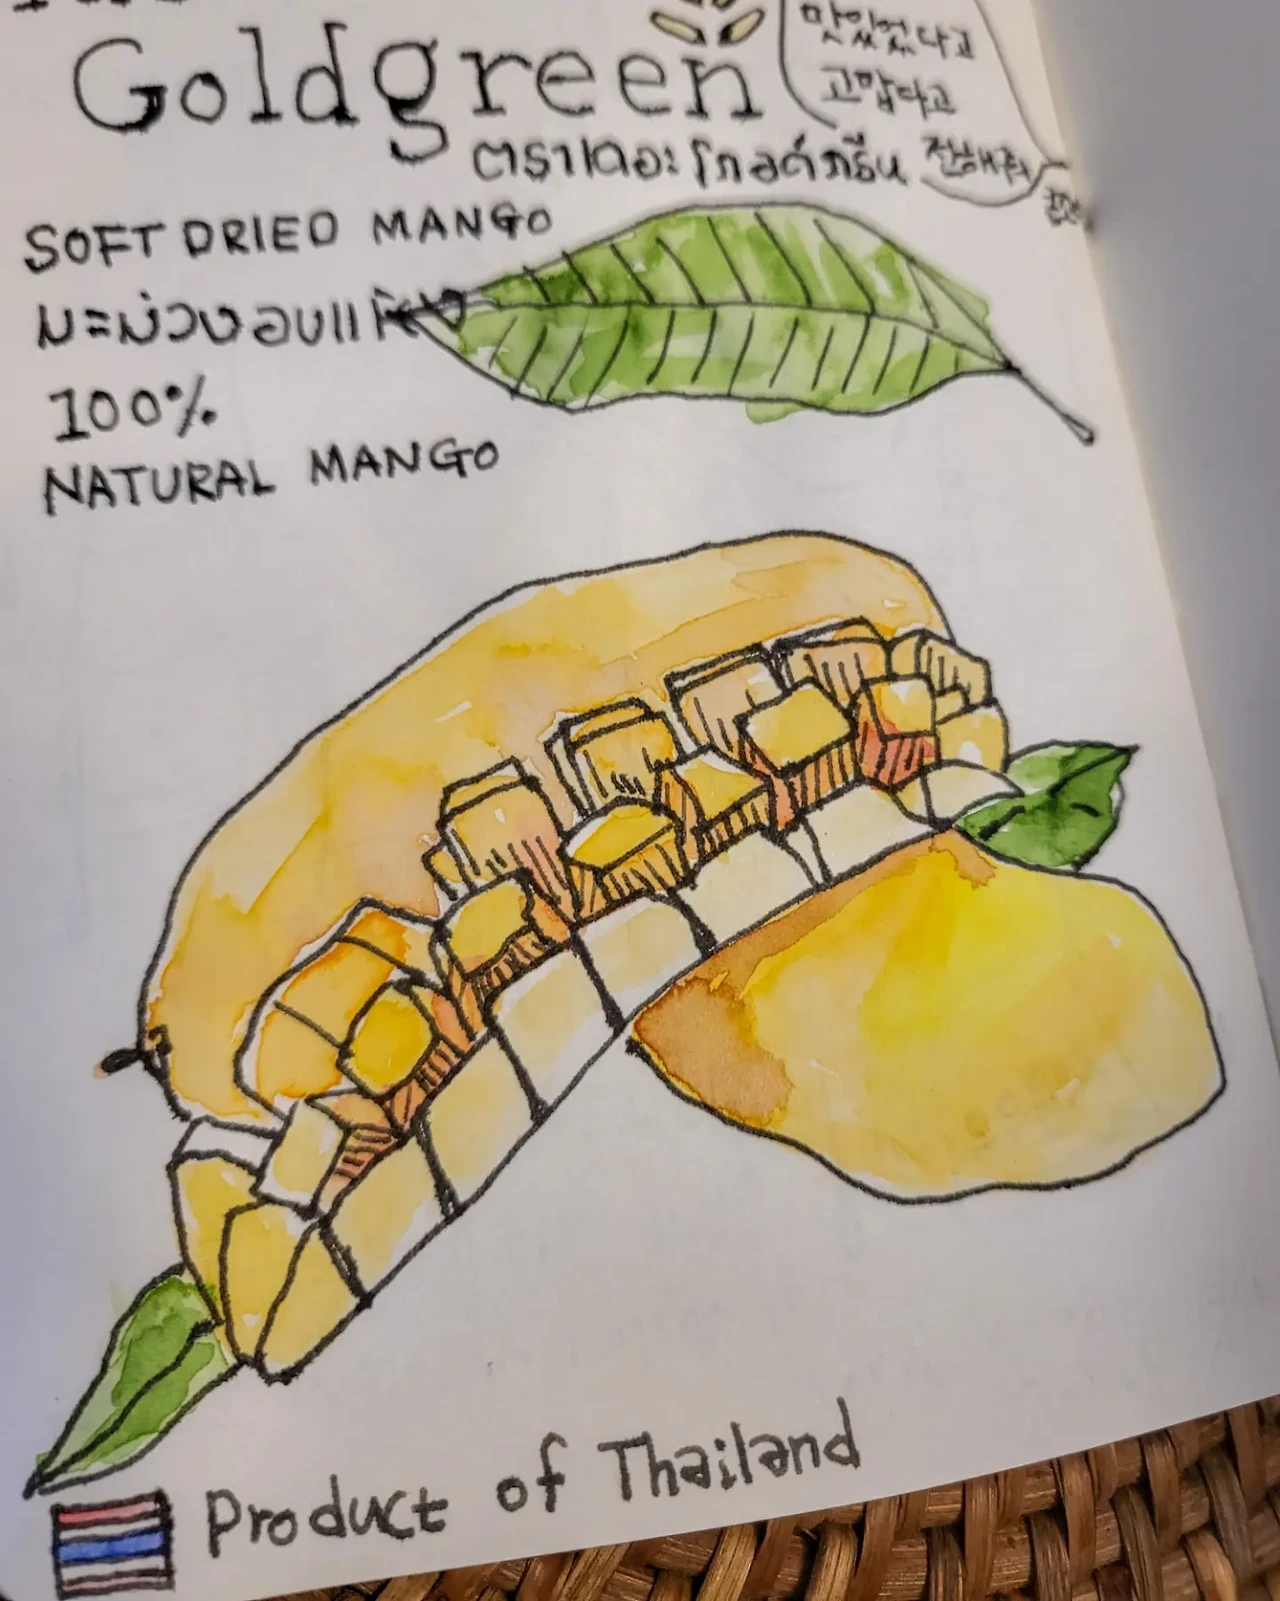 Goldgreen
맛있었다고
고맙다고
전해줘
ตราเดอะโกลด์กรีน
SOFT DRIED MANGO
มะม่วงอบแห้ง
100%
NATURAL MANGO
Product of Thailand